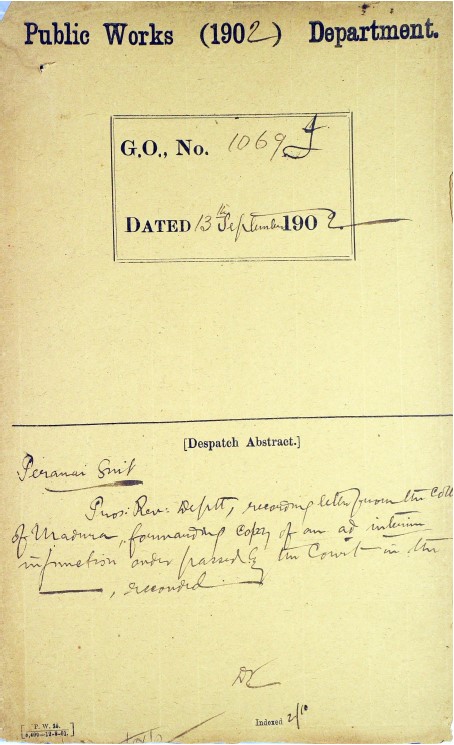 Public Works (1902) Department.
G.O., No. 1069 I
DATED 13th September 1902
[Despatch Abstract.]
Peranai Suit
Pros: Rev: Deptt, recording letter from the Coll
of Madura, forwarding copy of an ad interim
injunction order passed by the Court in the
, recorded.
Indexed 2/10
P. W. 16.